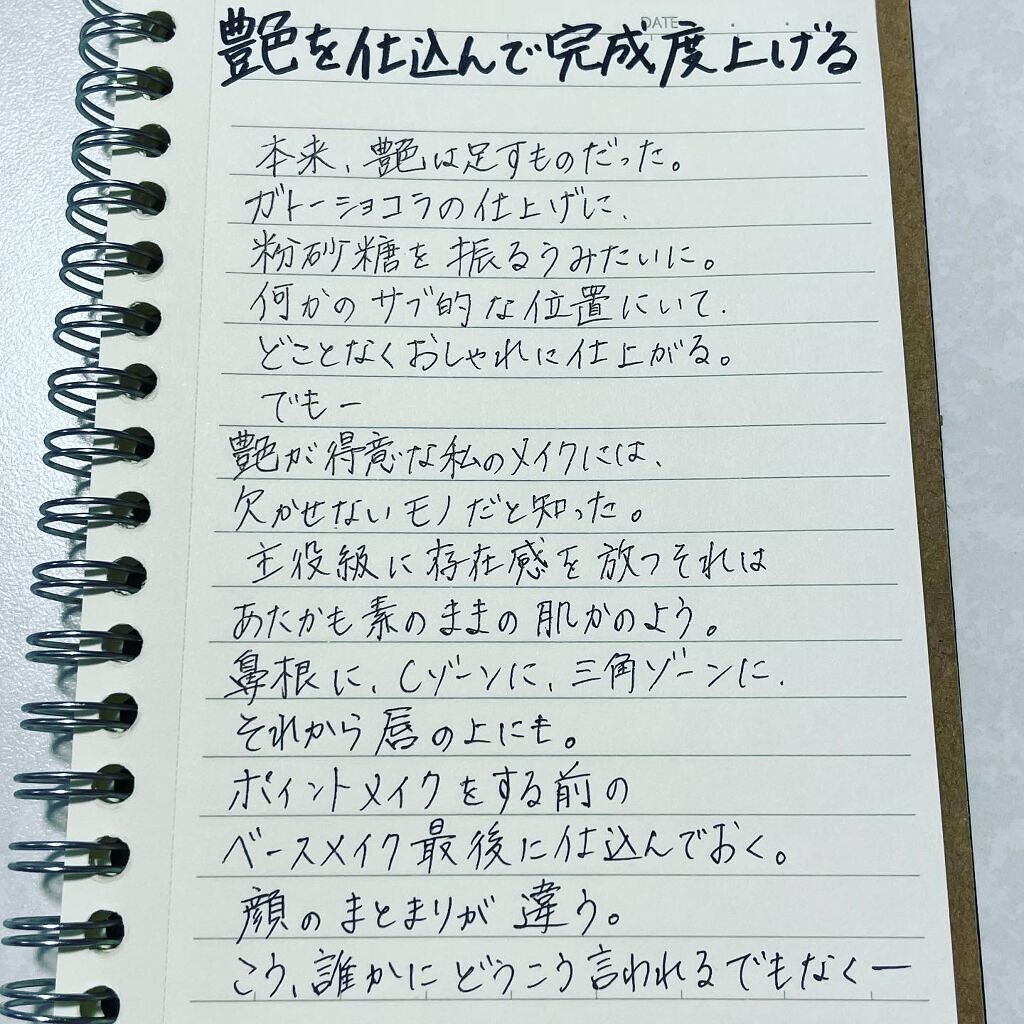 DATE
艶を仕込んで完成度上げる
本来、艶は足すものだった。
ガトーショコラの仕上げに、
粉砂糖を振るうみたいに。
何かのサブ的な位置にいて、
どことなくおしゃれに仕上がる。
でもー
艶が得意な私のメイクには、
欠かせないモノだと知った。
主役級に存在感を放つそれは
あたかも素のままの肌かのよう。
鼻根に、Cゾーンに、三角ゾーンに、
それから唇の上にも。
ポイントメイクをする前の
ベースメイク最後に仕込んでおく。
顔のまとまりが違う。
こう、誰かにどうこう言われるでもなくー